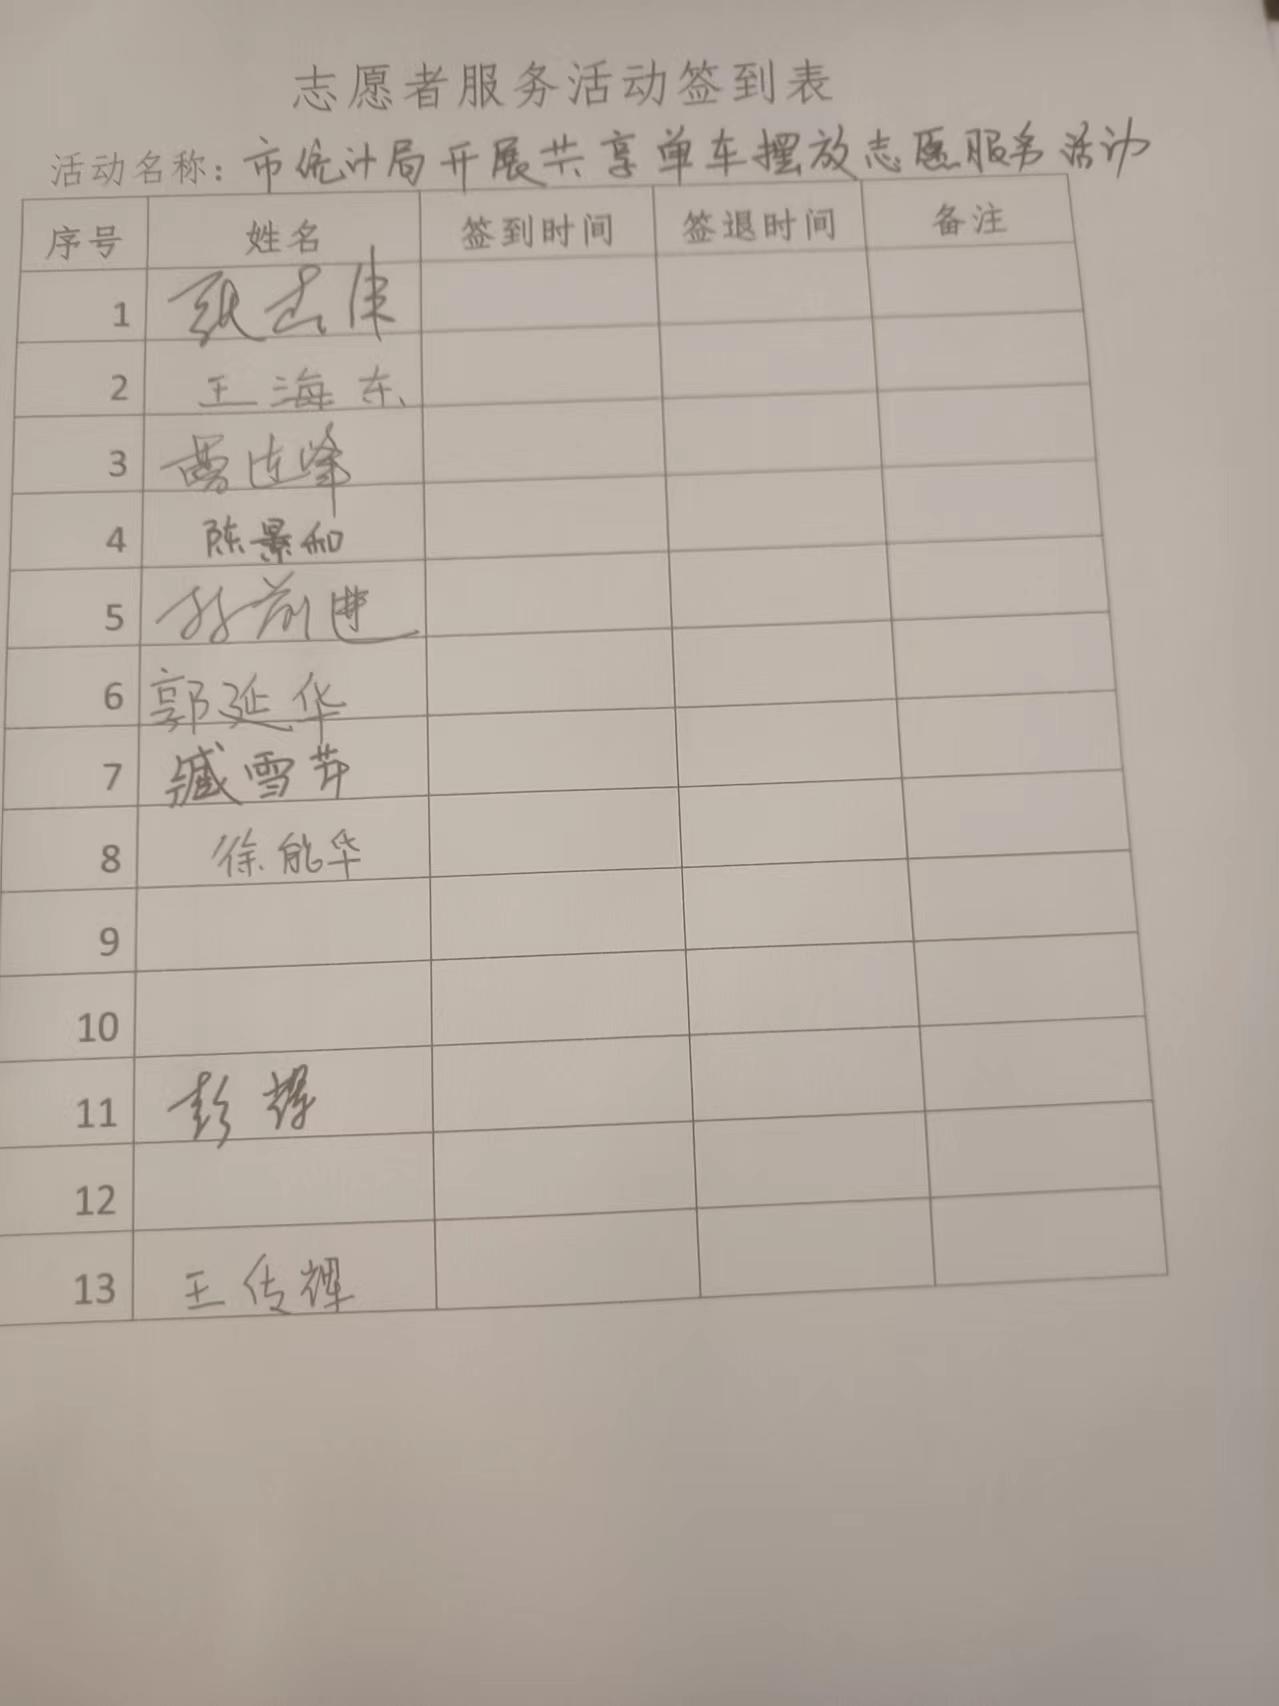 志愿者服务活动签到表
活动名称：市统计局开展共享单车摆放志愿服务活动
序号 姓名 签到时间 签退时间 备注
1 张志伟
2 王海东
3 曹连峰
4 陈景和
5 孙前进
6 郭延华
7 臧雪芹
8 徐能华
9
10
11 彭
12
13 王传辉